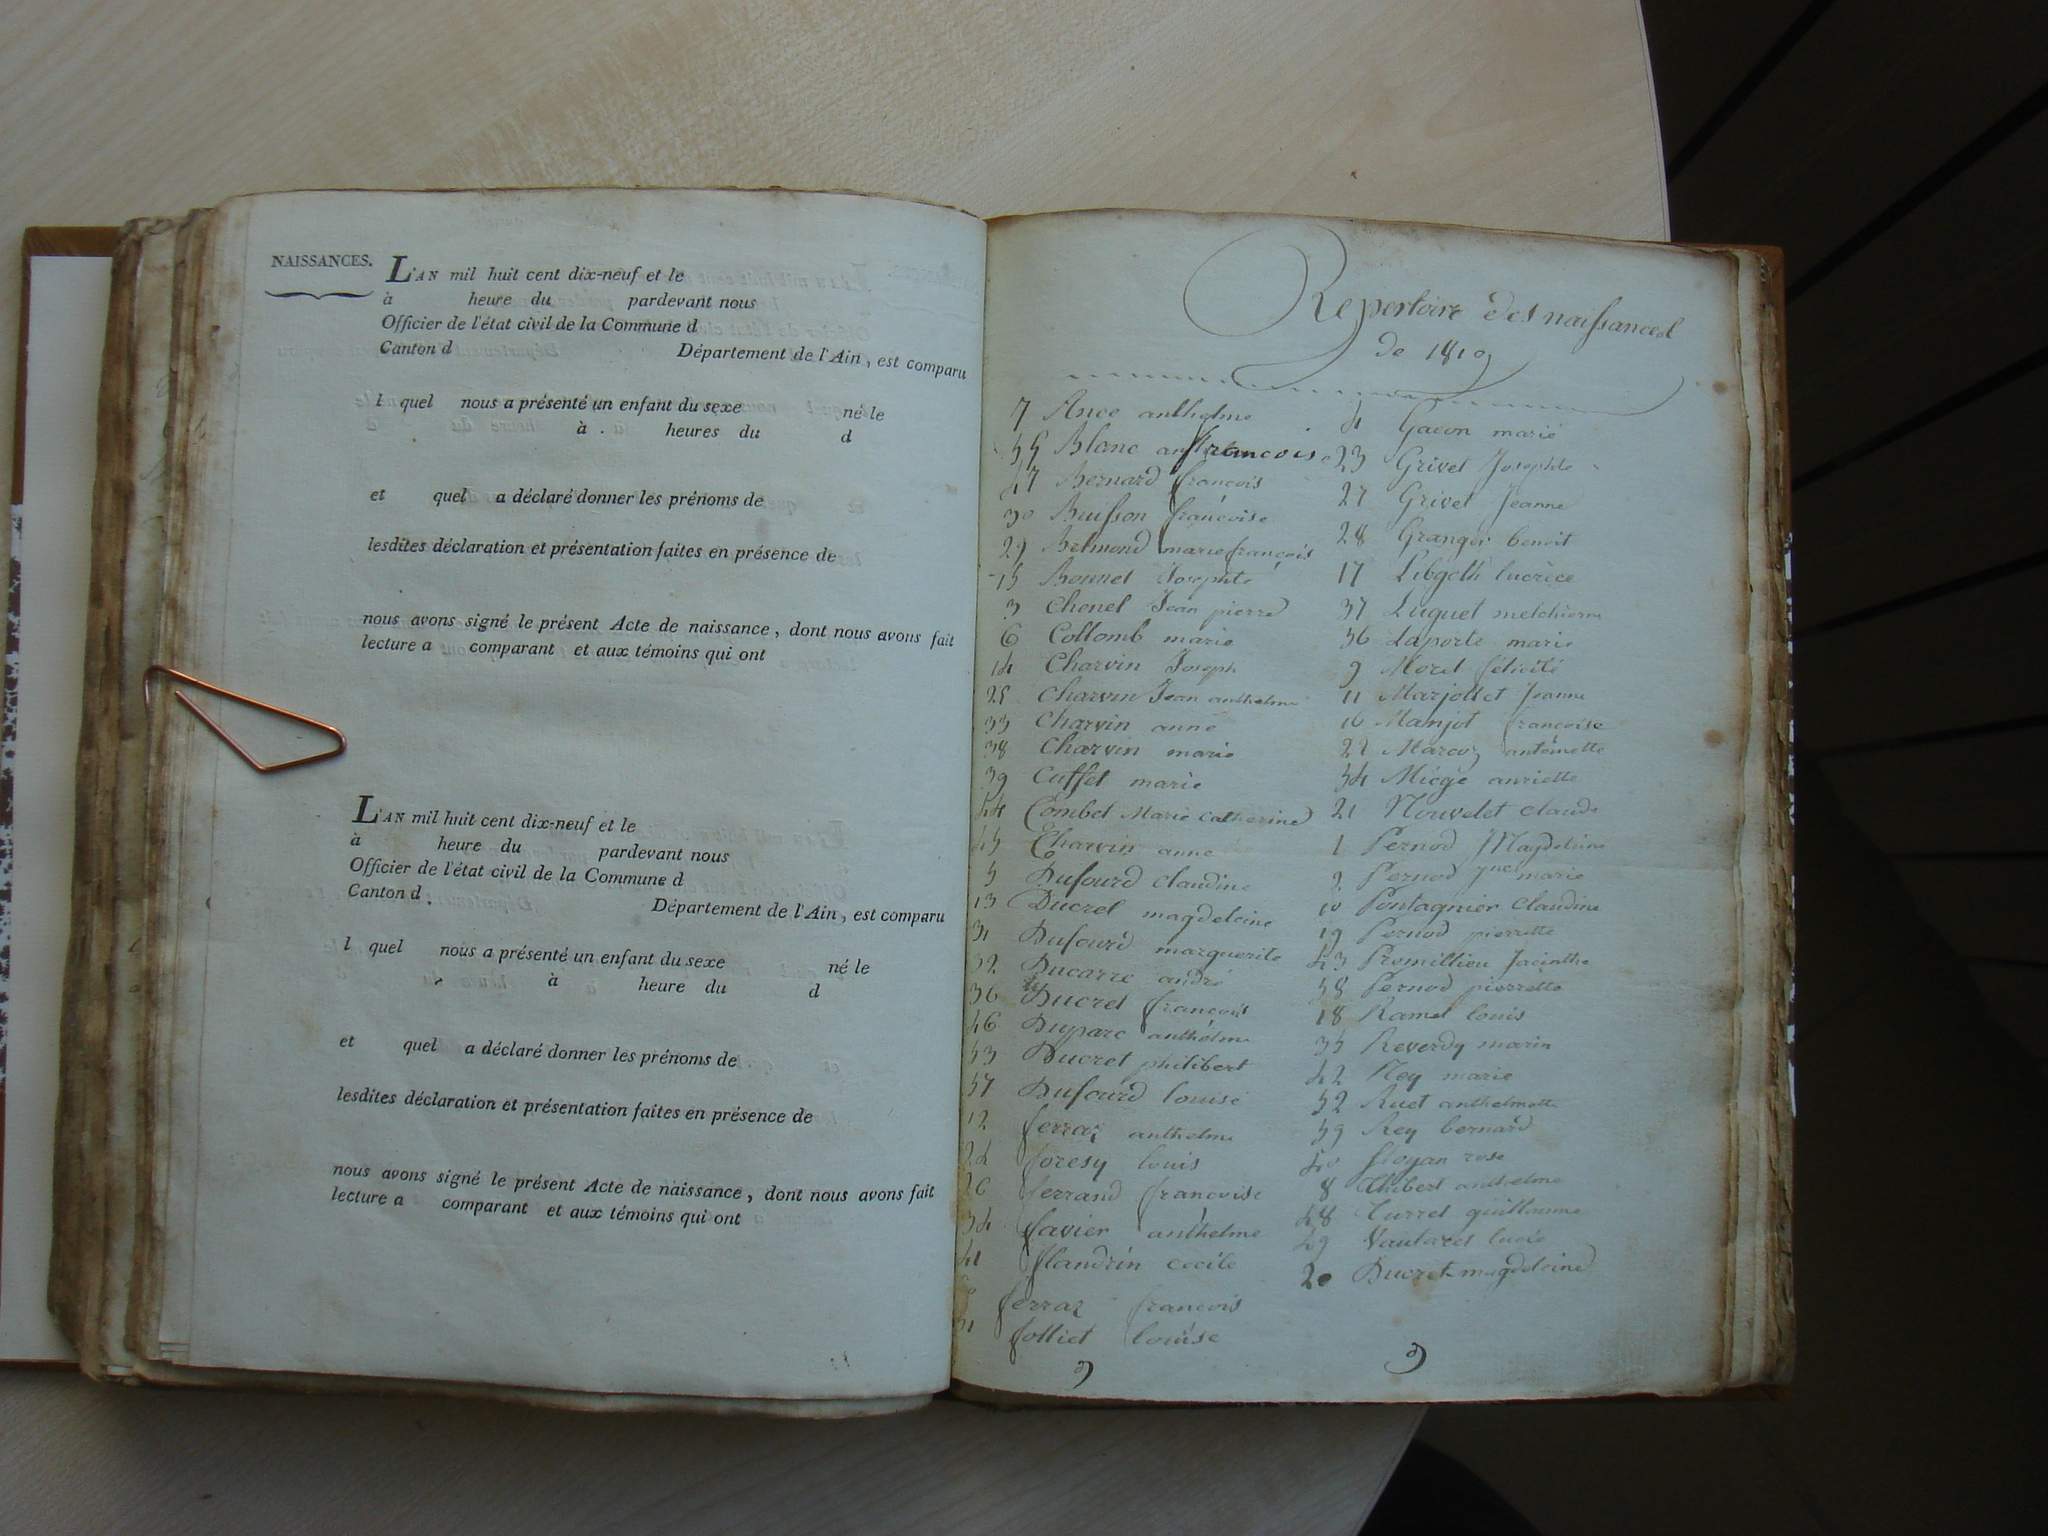 NAISSANCES.
L'AN mil huit cent dix-neuf et le
à heure du pardevant nous
Officier de l'état civil de la Commune d
Canton d Département de l'Ain, est comparu
l quel nous a présenté un enfant du sexe né le
à heures du d
et quel a déclaré donner les prénoms de
lesdites déclaration et présentation faites en présence de
nous avons signé le présent Acte de naissance, dont nous avons fait
lecture a comparant et aux témoins qui ont
L'AN mil huit cent dix-neuf et le
à heure du pardevant nous
Officier de l'état civil de la Commune d
Canton d Département de l'Ain, est comparu
l quel nous a présenté un enfant du sexe né le
à heure du d
et quel a déclaré donner les prénoms de
lesdites déclaration et présentation faites en présence de
nous avons signé le présent Acte de naissance, dont nous avons fait
lecture a comparant et aux témoins qui ont
Repertoire des naissances
de 1819
7 Ance anthelme
55 Blanc francois
47 Bernard francois
30 Buisson francoise
29 Belmond marie francois
15 Bonnet Josephte
3 Chenel Jean pierre
6 Collomb marie
14 Charvin Joseph
25 Charvin Jean anthelme
33 Charvin anne
38 Charvin marie
39 Cuffet marie
44 Combet Marie Catherine
45 Charvin anne
5 Dufourd claudine
13 Ducret magdeleine
31 Dufourd marguerite
32 Ducarre andré
56 Ducret francois
46 Duparc anthelme
53 Ducret philibert
57 Dufourd louise
12 ferraz anthelme
24 foresy louis
26 ferrand francoise
54 favier anthelme
41 flandrin cecile
ferraz francois
folliet louise
4 Gacon marie
23 Grivet Josephte
27 Grivet Jeanne
28 Granger benoit
17 lucrece
37 Luguet
36 Laporte marie
9 Morel félicité
11 Marjollet Jeanne
16 Manjot francoise
22 Marcoz antoinette
34 Miege anriette
21 Nouvelet claude
1 Pernod Magdeleine
2 Pernod marie
10 Pontagnier Claudine
19 Pernod pierrette
43 Promillieu Jacinthe
58 Pernod pierrette
18 Ramel louis
35 Reverdy marin
42 Rey marie
52 Ruet anthelmette
59 Rey bernard
40 rose
8 Thibert anthelme
48 Turrel guillaume
49
20 Ducret magdeleine